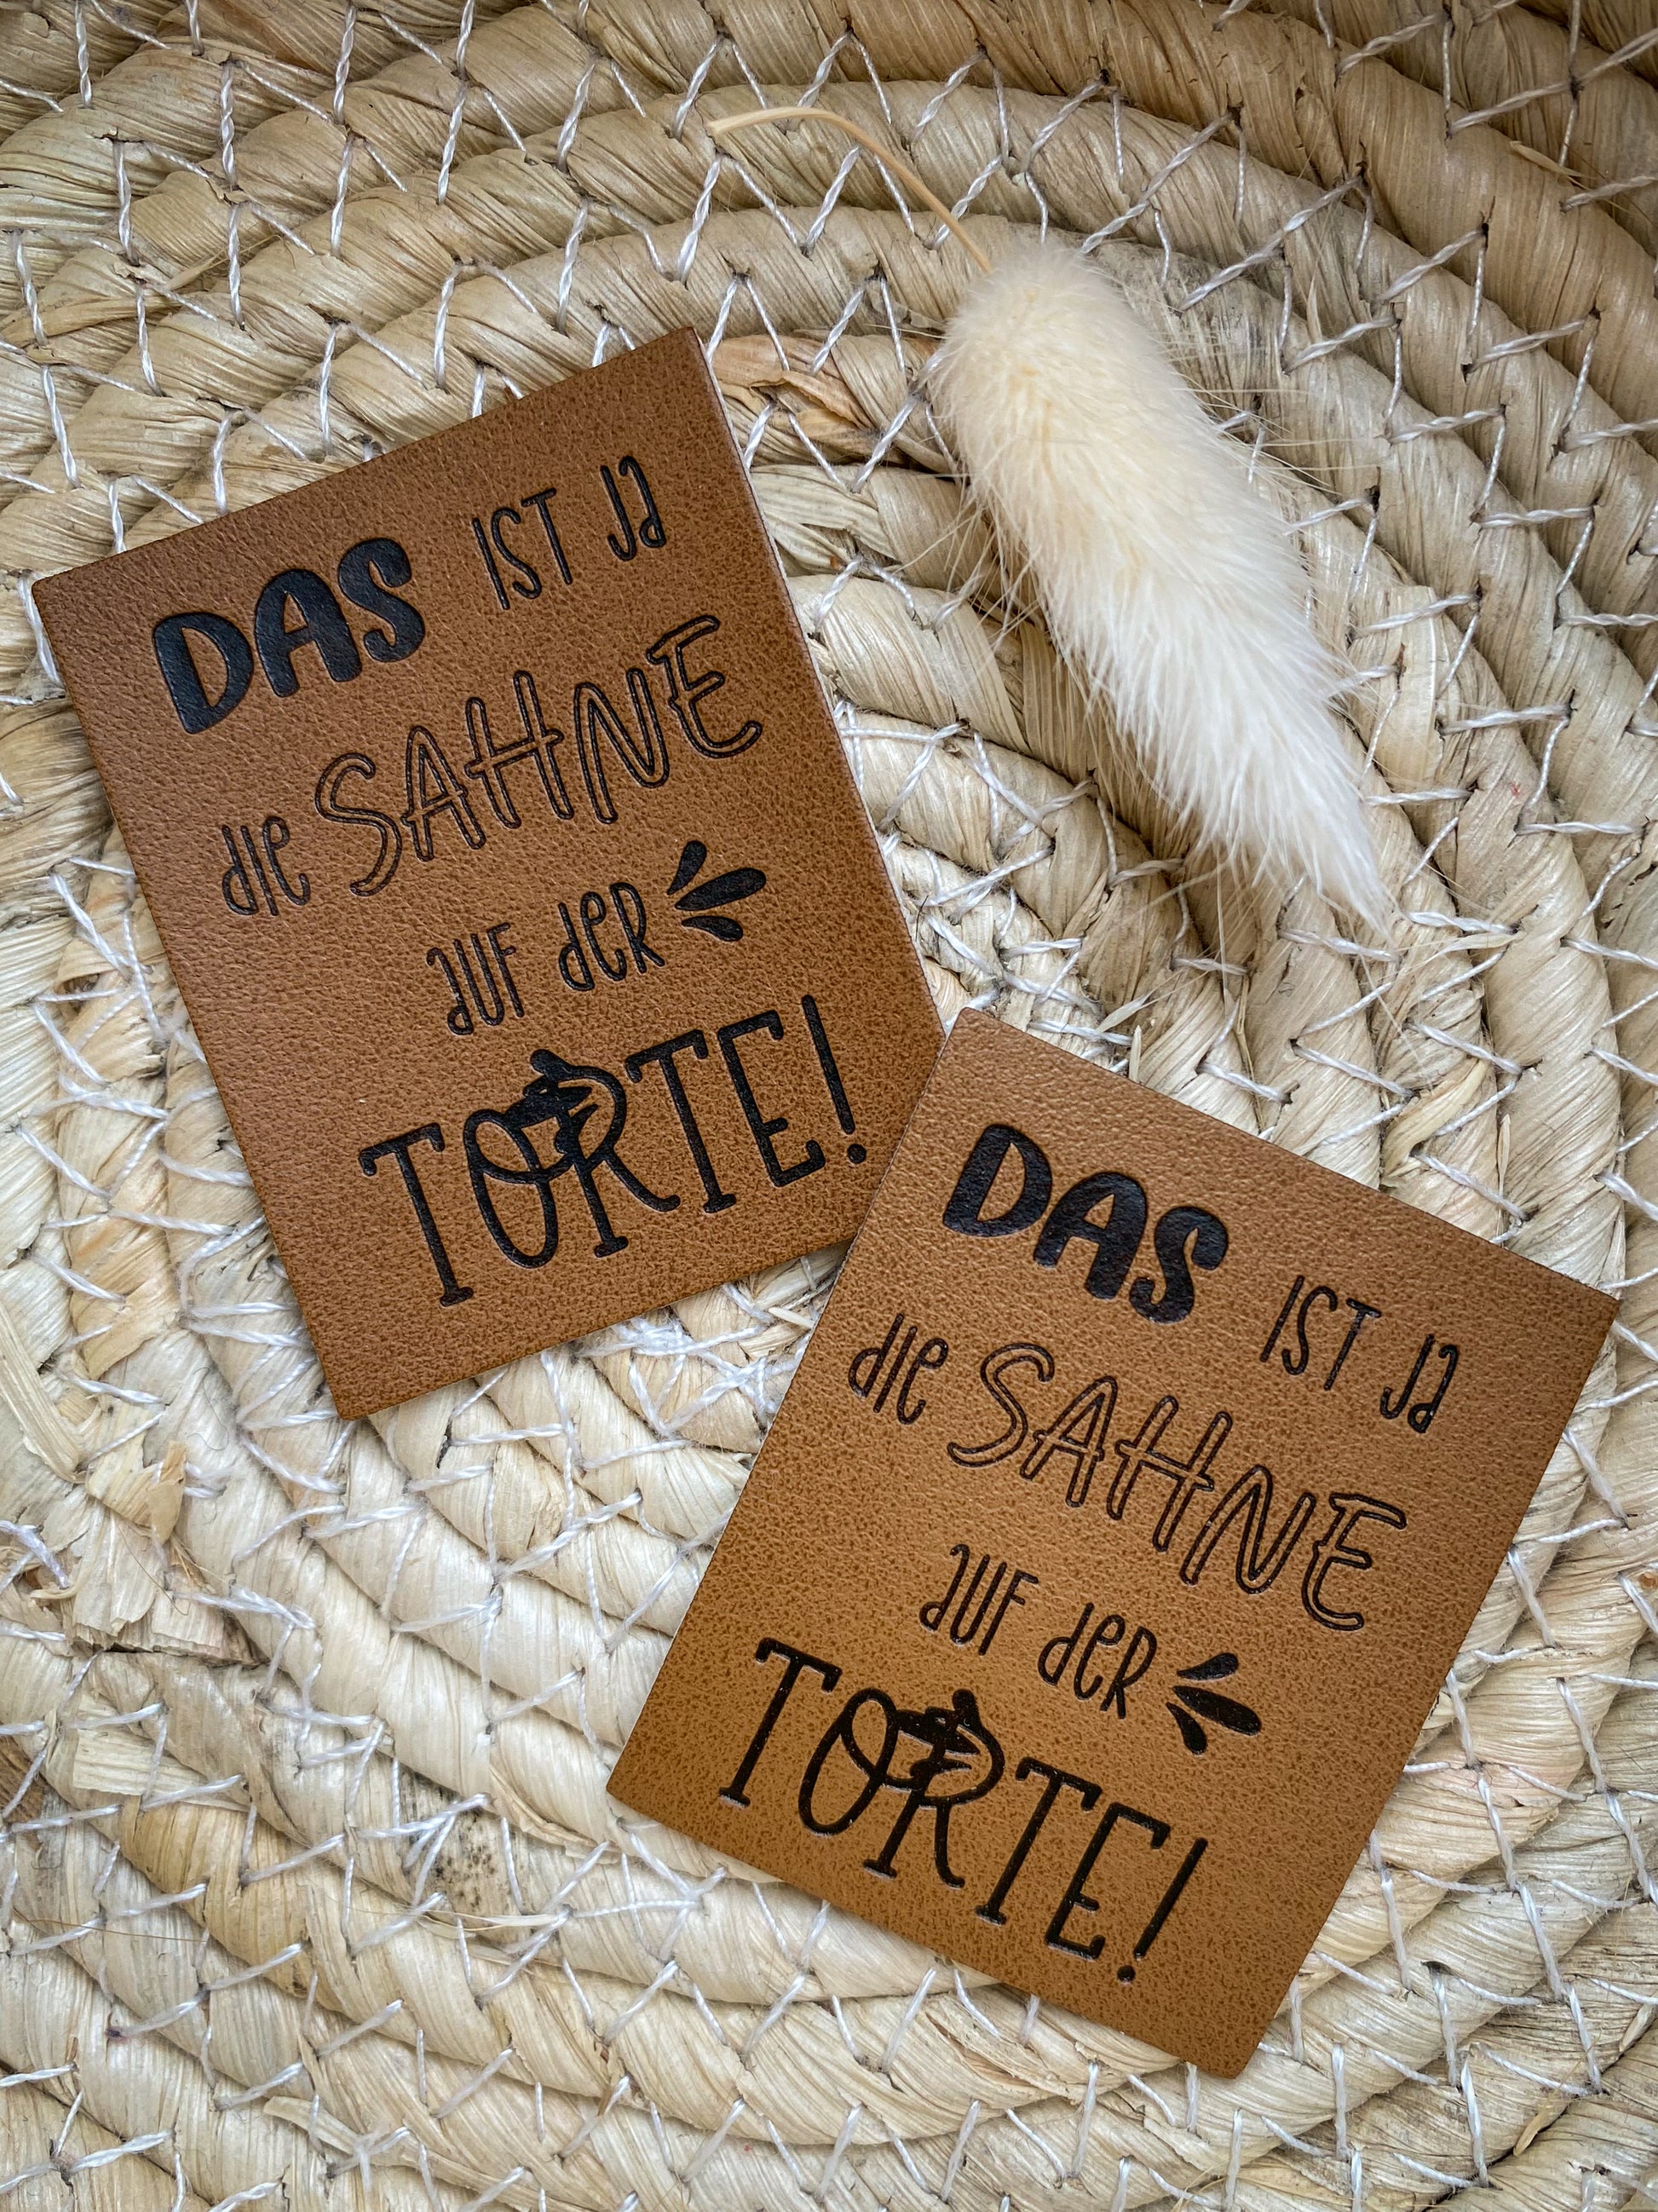 DAS IST Ja
die SAHNE
aUF deR
TORTE!
DAS IST Ja
die SAHNE
aUF deR
TORTE!